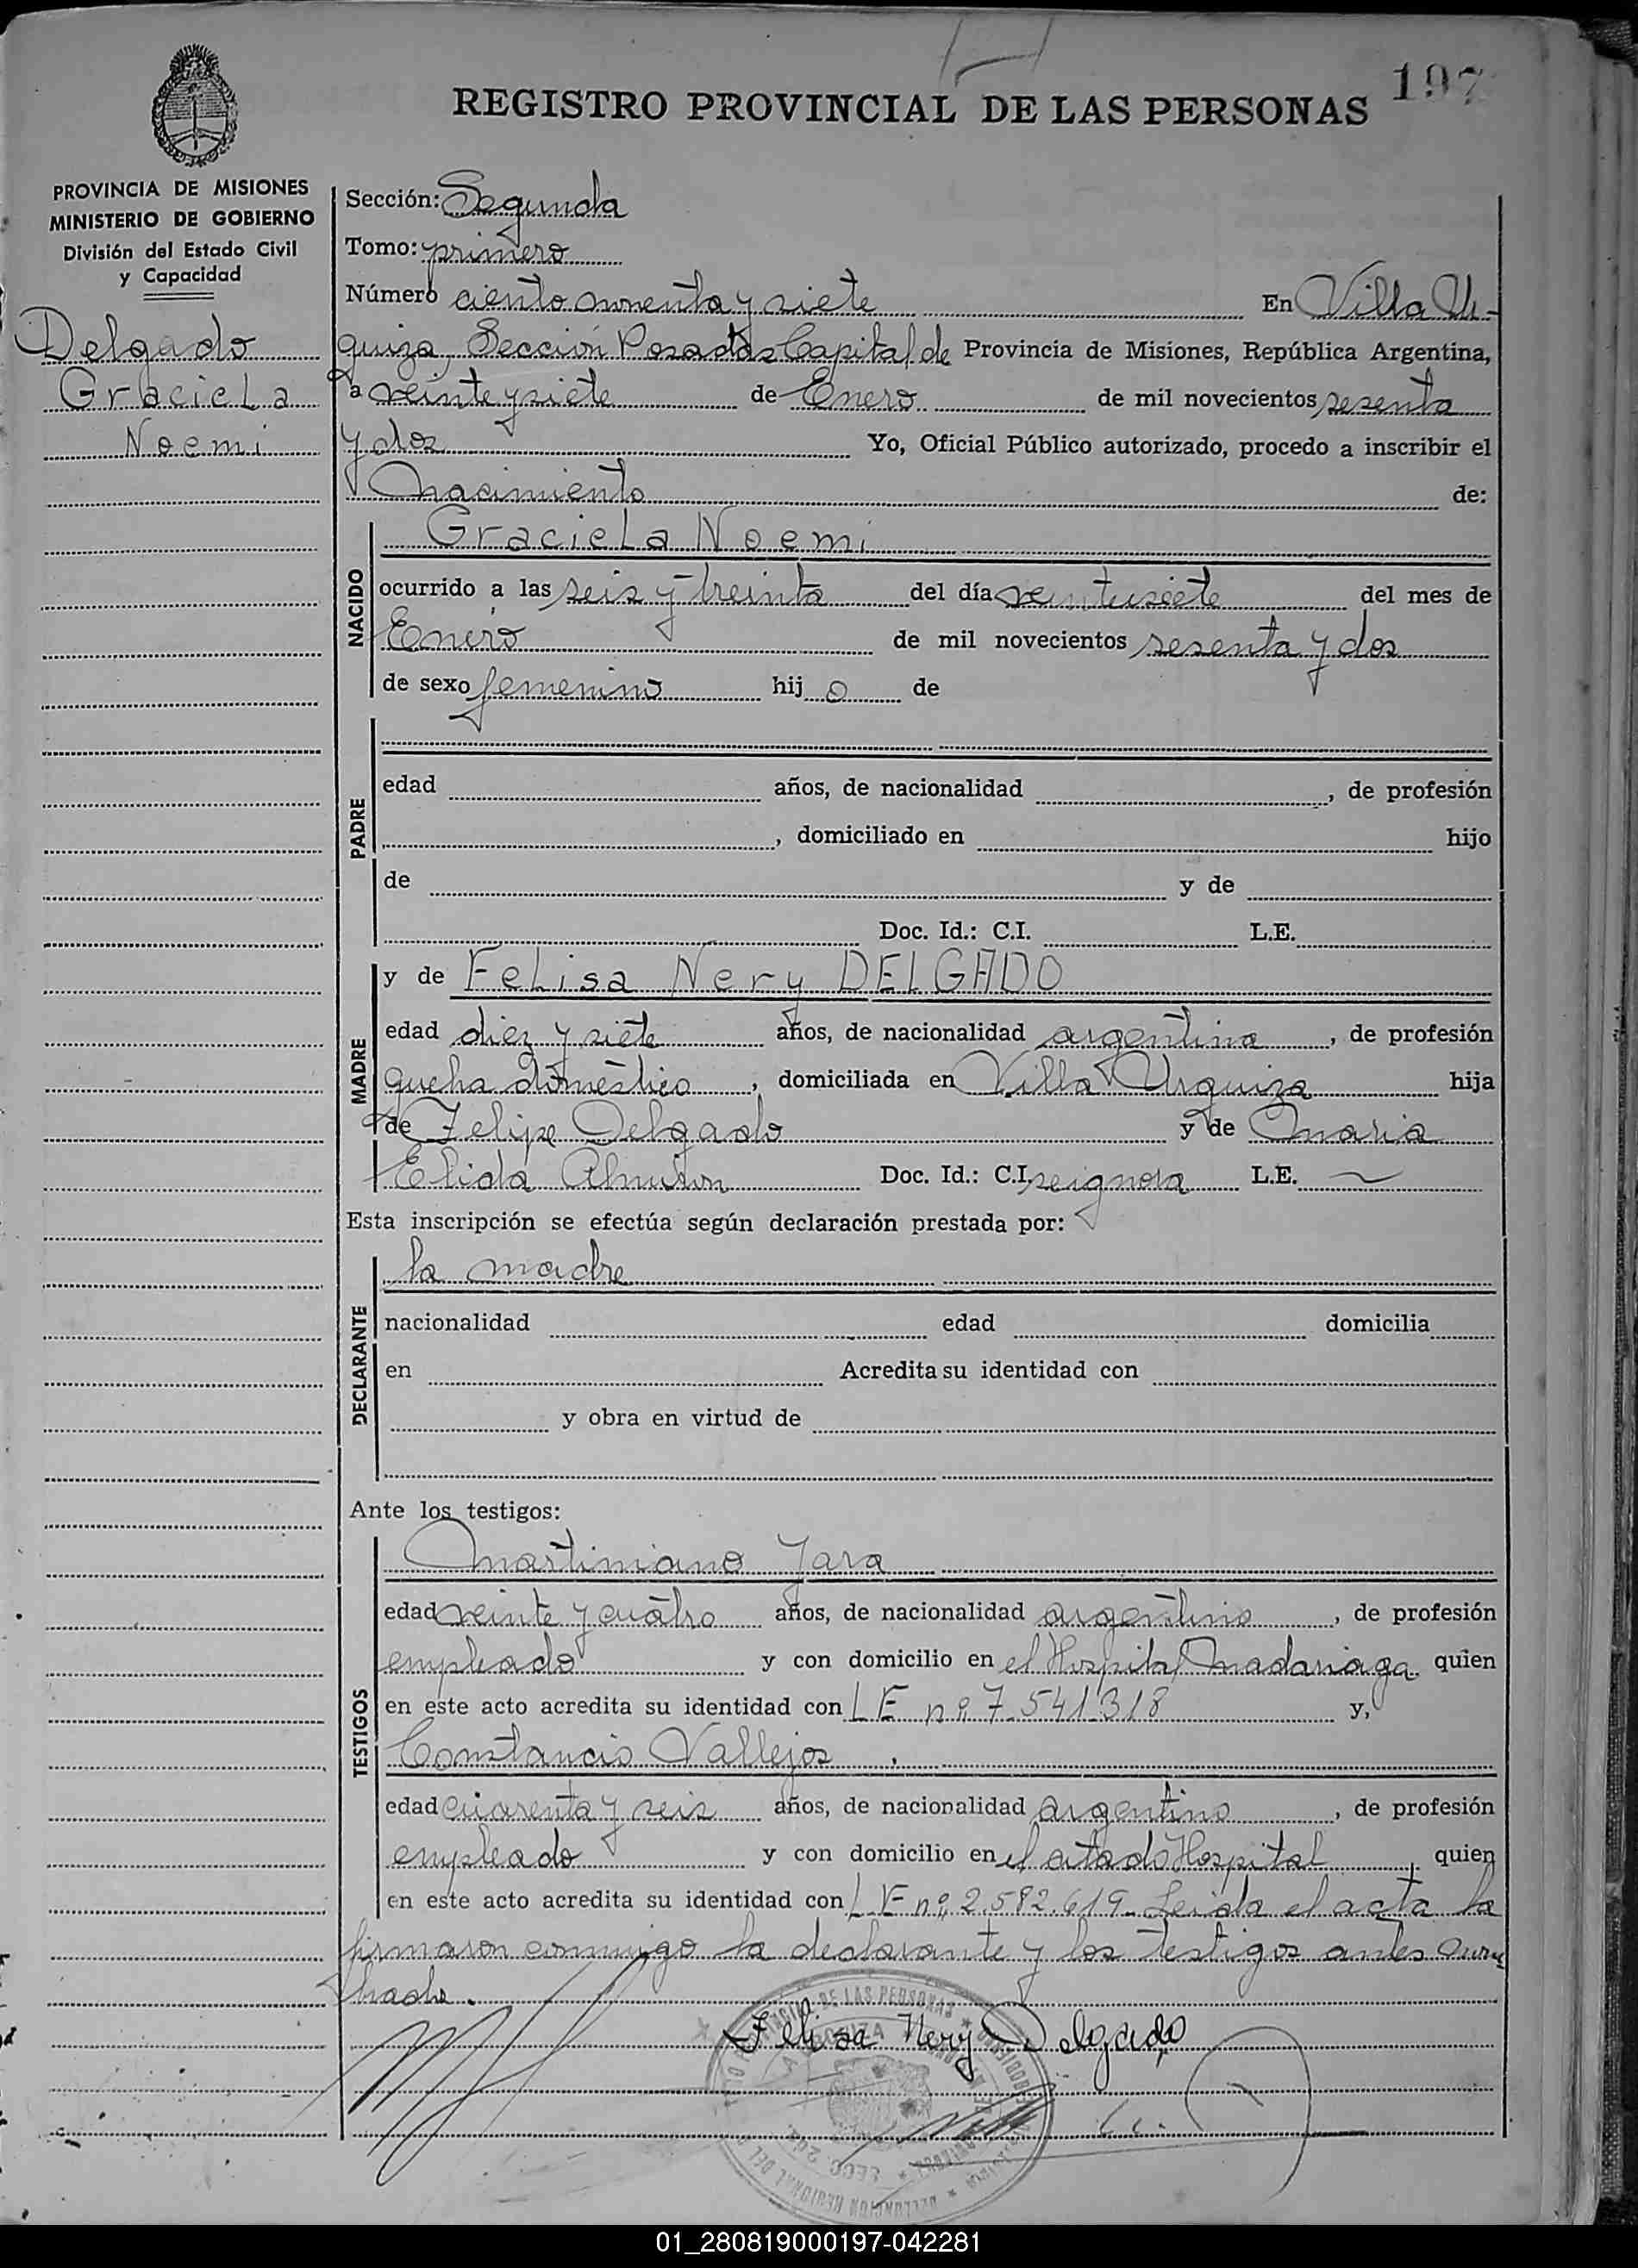 197
REGISTRO PROVINCIAL DE LAS PERSONAS
PROVINCIA DE MISIONES
MINISTERIO DE GOBIERNO
División del Estado Civil
y Capacidad
Delgado
Graciela
Noemi
Sección: Segunda
Tomo: primero
Número ciento noventa y siete En Villa Ur-
quiza, Sección Posadas Capital de Provincia de Misiones, República Argentina,
a veinte y siete de Enero de mil novecientos sesenta
y dos Yo, Oficial Público autorizado, procedo a inscribir el
Nacimiento de:
NACIDO
Graciela Noemi
ocurrido a las seis y treinta del día veintisiete del mes de
Enero de mil novecientos sesenta y dos
de sexo femenino hij a de
PADRE
edad años, de nacionalidad , de profesión
, domiciliado en hijo
de y de
Doc. Id.: C.I. L.E.
MADRE
y de Felisa Nery DELGADO
edad diez y siete años, de nacionalidad argentina, de profesión
queha domestico, domiciliada en Villa Urquiza hija
de Felipe Delgado y de Maria
Elida Doc. Id.: C.I. L.E.
Esta inscripción se efectúa según declaración prestada por:
DECLARANTE
la madre
nacionalidad edad domicilia
en Acredita su identidad con
y obra en virtud de
Ante los testigos:
TESTIGOS
Martiniano Jara
edad veinte y cuatro años, de nacionalidad argentino, de profesión
empleado y con domicilio en el Hospital Madariaga quien
en este acto acredita su identidad con LE nº 7.541.318 y,
Constancio Vallejos
edad cuarenta y seis años, de nacionalidad argentino, de profesión
empleado y con domicilio en el citado Hospital, quien
en este acto acredita su identidad con LE nº 2.582.619. Leida el acta la
firmaron conmigo la declarante y los testigos antes
Felisa Nery Delgado
01_280819000197-042281